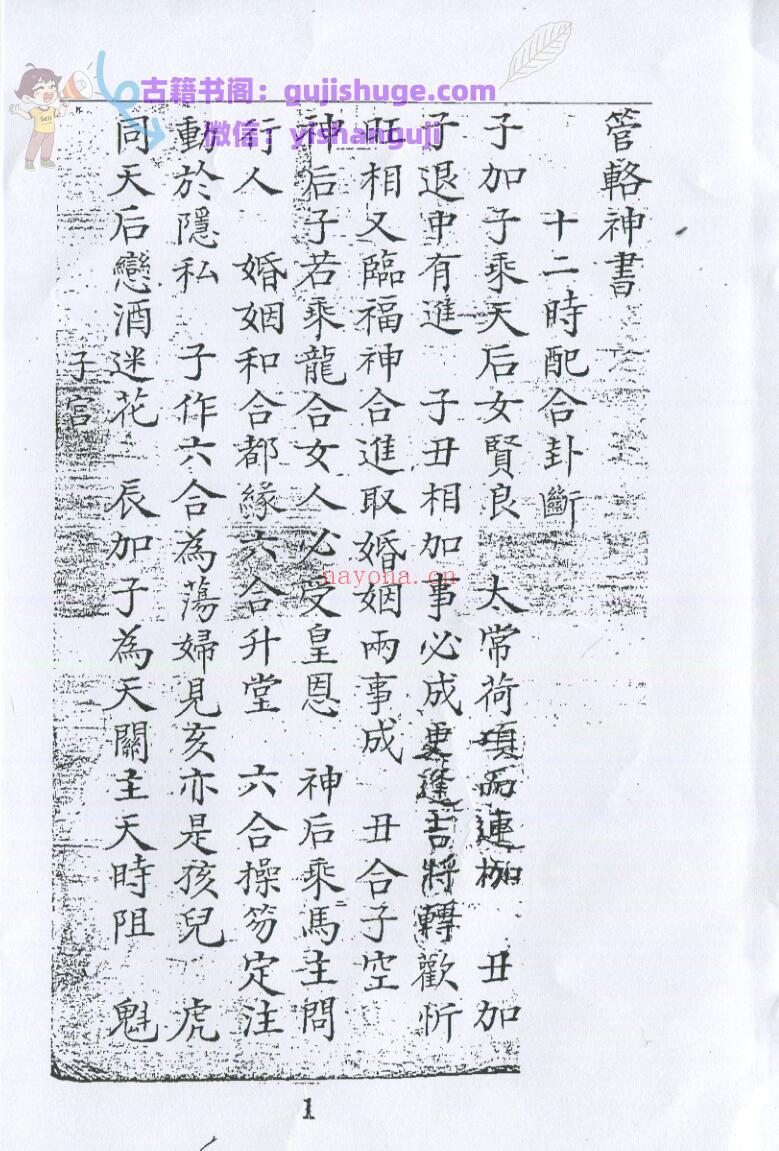 古籍书阁：gujishuge.com
微信：yishanguji
管輅神書
十二時配合卦斷
子加子乘天后女賢良　太常荷項而連枷　丑加
子退中有進　子丑相加　事必成更逢吉將轉歡忻
旺相又臨福神合進取婚姻兩事成　丑合子空
神后子若乘龍合女人必受皇恩　神后乘馬主問
行人　婚姻和合都緣六合升堂　六合操笏定注
動於隱私　子作六合為蕩婦見亥亦是孩兒　虎
同天后戀酒迷花　辰加子為天關主天時阻　魁
子宮
nayona.cn
1
Sell